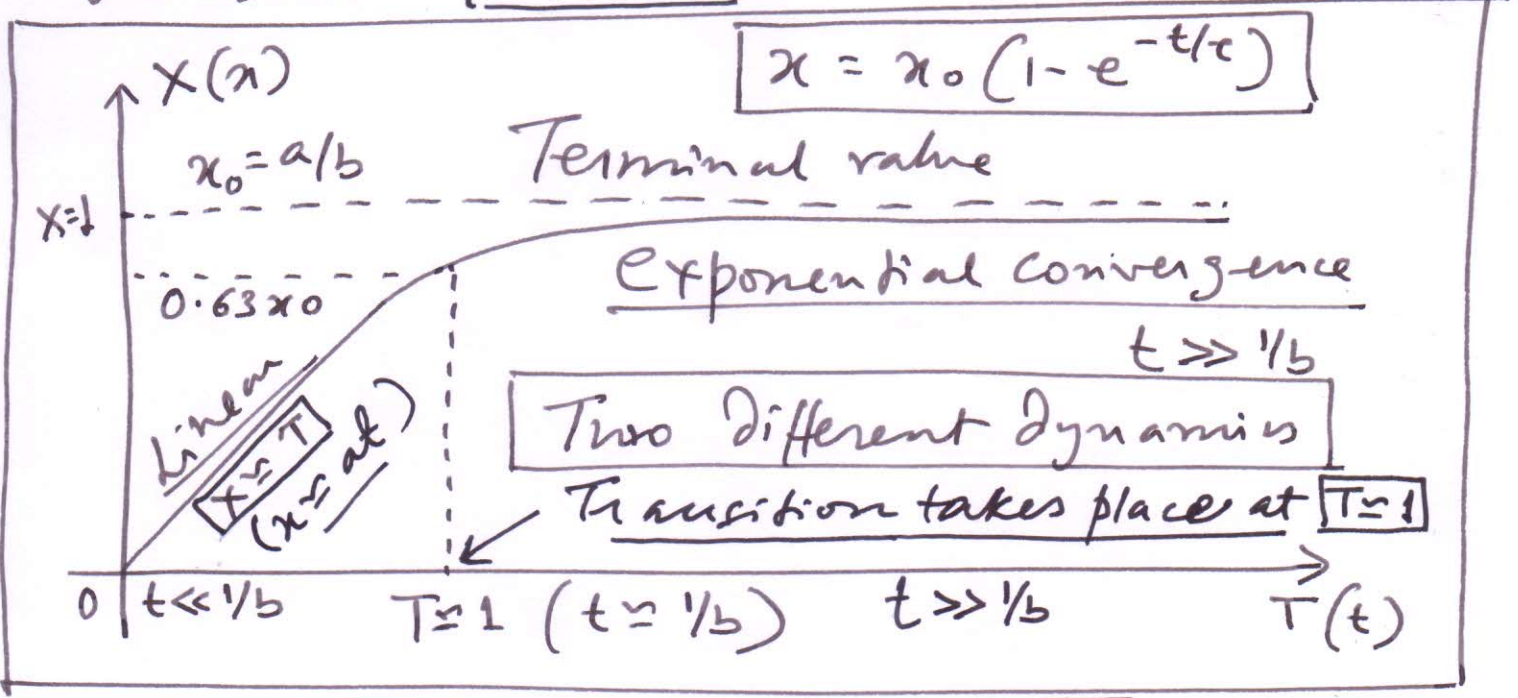 X(x)
x = x₀(1-e^{-t/τ})
x₀ = a/b
Terminal value
X=1
exponential convergence
0.63x₀
t >> 1/b
Linear
X ≃ T
(x ≃ at)
Two Different Dynamics
Transition takes place at T≃1
0
t << 1/b
T≃1 (t ≃ 1/b)
t >> 1/b
T(t)